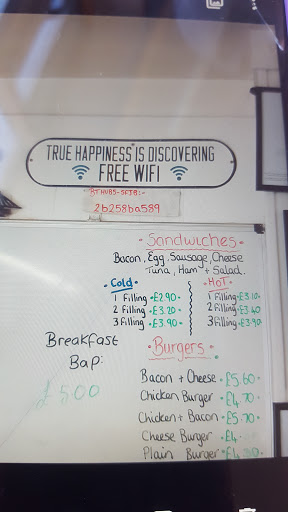 TRUE HAPPINESS IS DISCOVERING
FREE WIFI
2b258ba589
• Sandwiches •
Bacon, Egg, Sausage, Cheese
Tuna, Ham + Salad.
• Cold •
1 Filling •£2.90•
2 Filling •£3.20•
3 Filling •£3.90•
• HOT •
1 Filling •£3.10•
2 Filling •£3.40
3 Filling •£3.90
Breakfast
Bap:
£5.00
• Burgers •
Bacon + Cheese •£5.60•
Chicken Burger •£4.70•
Chicken + Bacon •£5.70•
Cheese Burger •£4
Plain Burger